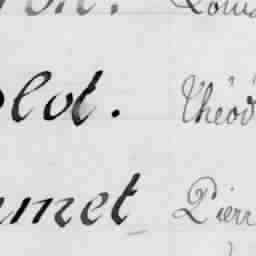 on. Louis
lot. Théod
met Pierr